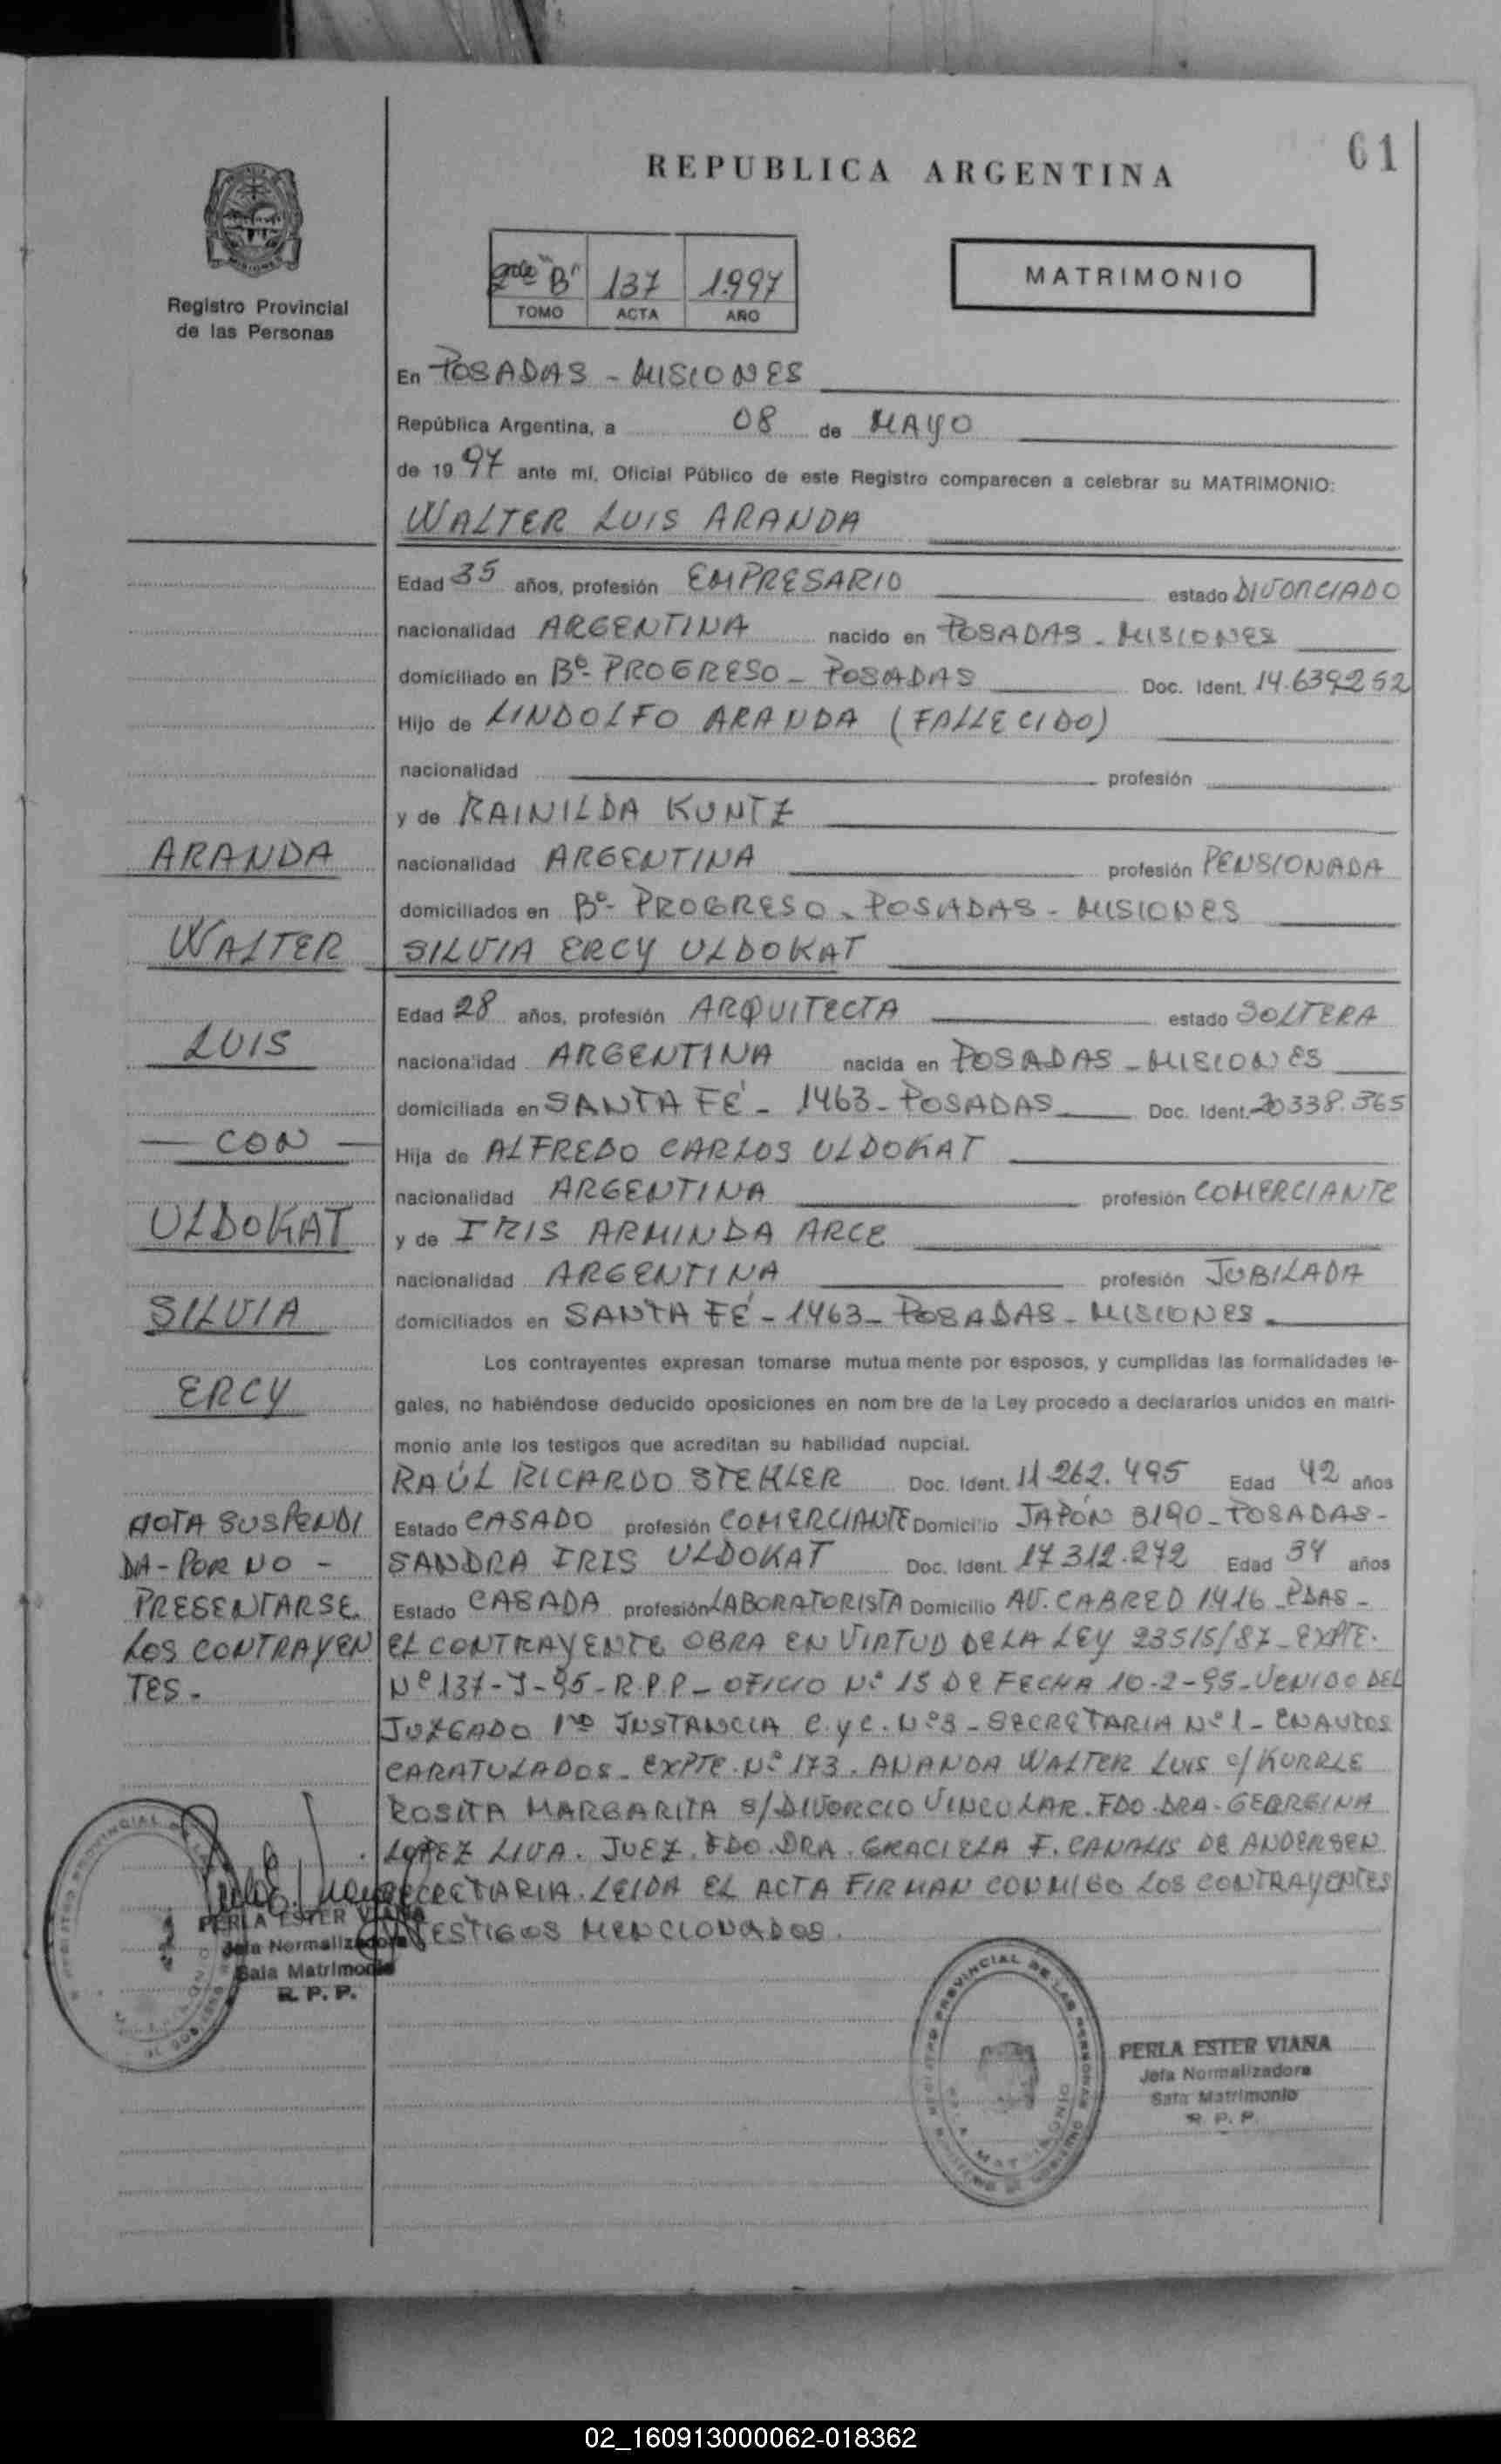 61
REPUBLICA ARGENTINA
MISIONES
Registro Provincial
de las Personas
"B" 137 1.997
TOMO ACTA AÑO
MATRIMONIO
En POSADAS - MISIONES
República Argentina, a 08 de MAYO
de 1997 ante mí, Oficial Público de este Registro comparecen a celebrar su MATRIMONIO:
WALTER LUIS ARANDA
Edad 35 años, profesión EMPRESARIO estado DIVORCIADO
nacionalidad ARGENTINA nacido en POSADAS - MISIONES
domiciliado en Bº- PROGRESO - POSADAS Doc. Ident. 14.639252
Hijo de LINDOLFO ARANDA (FALLECIDO)
nacionalidad profesión
y de RAINILDA KUNTZ
nacionalidad ARGENTINA profesión PENSIONADA
domiciliados en Bº- PROGRESO - POSADAS - MISIONES
SILVIA ERCY ULDOKAT
Edad 28 años, profesión ARQUITECTA estado SOLTERA
nacionalidad ARGENTINA nacida en POSADAS - MISIONES
domiciliada en SANTA FÉ - 1463 - POSADAS Doc. Ident. 20338.365
Hija de ALFREDO CARLOS ULDOKAT
nacionalidad ARGENTINA profesión COMERCIANTE
y de IRIS ARMINDA ARCE
nacionalidad ARGENTINA profesión JUBILADA
domiciliados en SANTA FÉ - 1463 - POSADAS - MISIONES.
Los contrayentes expresan tomarse mutua mente por esposos, y cumplidas las formalidades le-
gales, no habiéndose deducido oposiciones en nom bre de la Ley procedo a declararlos unidos en matri-
monio ante los testigos que acreditan su habilidad nupcial.
RAÚL RICARDO STEKLER Doc. Ident. 11.262.495 Edad 42 años
Estado CASADO profesión COMERCIANTE Domicilio JAPÓN 3190 - POSADAS -
SANDRA IRIS ULDOKAT Doc. Ident. 17312.272 Edad 34 años
Estado CASADA profesión LABORATORISTA Domicilio AV. CABRED 1416 - PDAS -
EL CONTRAYENTE OBRA EN VIRTUD DE LA LEY 23515/87 - EXPTE.
Nº 137-J-95 - R.P.P - OFICIO Nº 15 DE FECHA 10-2-95 - VENIDO DEL
JUZGADO 1ra INSTANCIA C. y C. Nº 3 - SECRETARIA Nº 1 - EN AUTOS
CARATULADOS - EXPTE. Nº 173. ARANDA WALTER LUIS c/ KURRLE
ROSITA MARGARITA S/DIVORCIO VINCULAR. FDO. DRA. GEORGINA
LOPEZ LIVA. JUEZ. FDO. DRA. GRACIELA F. CANALIS DE ANDERSEN
SECRETARIA. LEIDA EL ACTA FIRMAN CONMIGO LOS CONTRAYENTES
TESTIGOS MENCIONADOS.
ARANDA
WALTER
LUIS
- CON -
ULDOKAT
SILVIA
ERCY
ACTA SUSPENDI
DA - POR NO -
PRESENTARSE
LOS CONTRAYEN
TES -
PERLA ESTER VIANA
Jefa Normalizadora
Sala Matrimonio
R. P. P.
REGISTRO PROVINCIAL DE LAS PERSONAS
SALA MATRIMONIO
PERLA ESTER VIANA
Jefa Normalizadora
Sala Matrimonio
R. P. P.
02_160913000062-018362